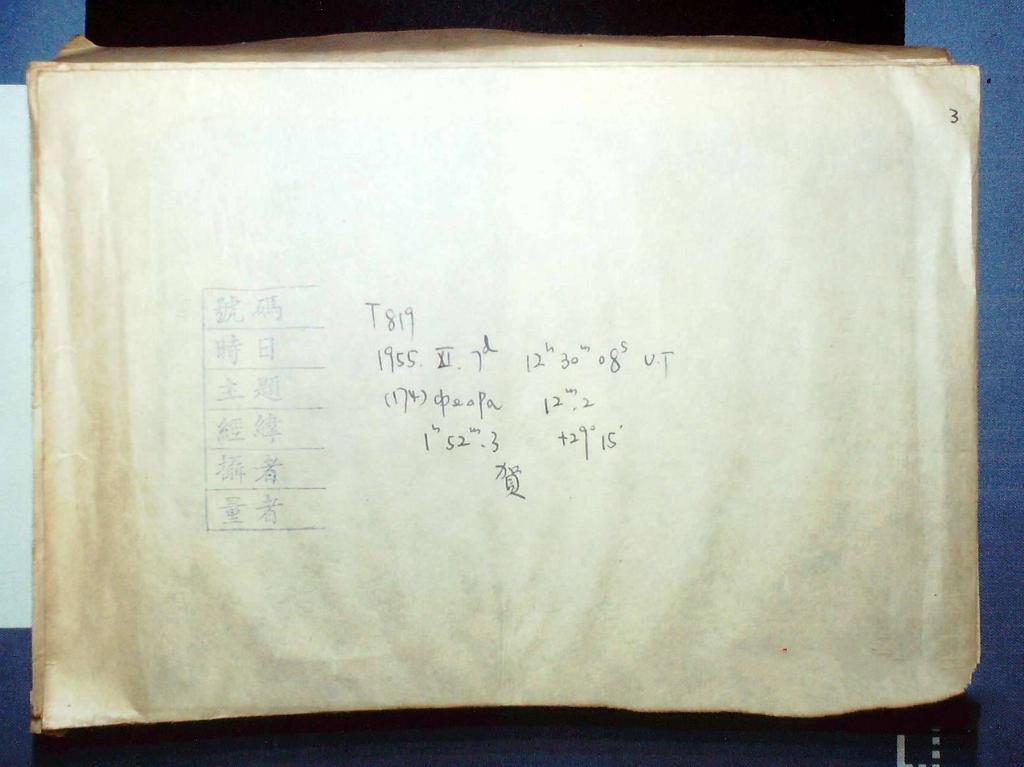 3
號碼 T 819
時日 1955. XI. 7ᵈ 12ʰ 30ᵐ 08ˢ U.T
主題 (174) Федра 12ᵐ.2
經緯 1ʰ 52ᵐ.3 +29° 15'
攝者 賀
量者